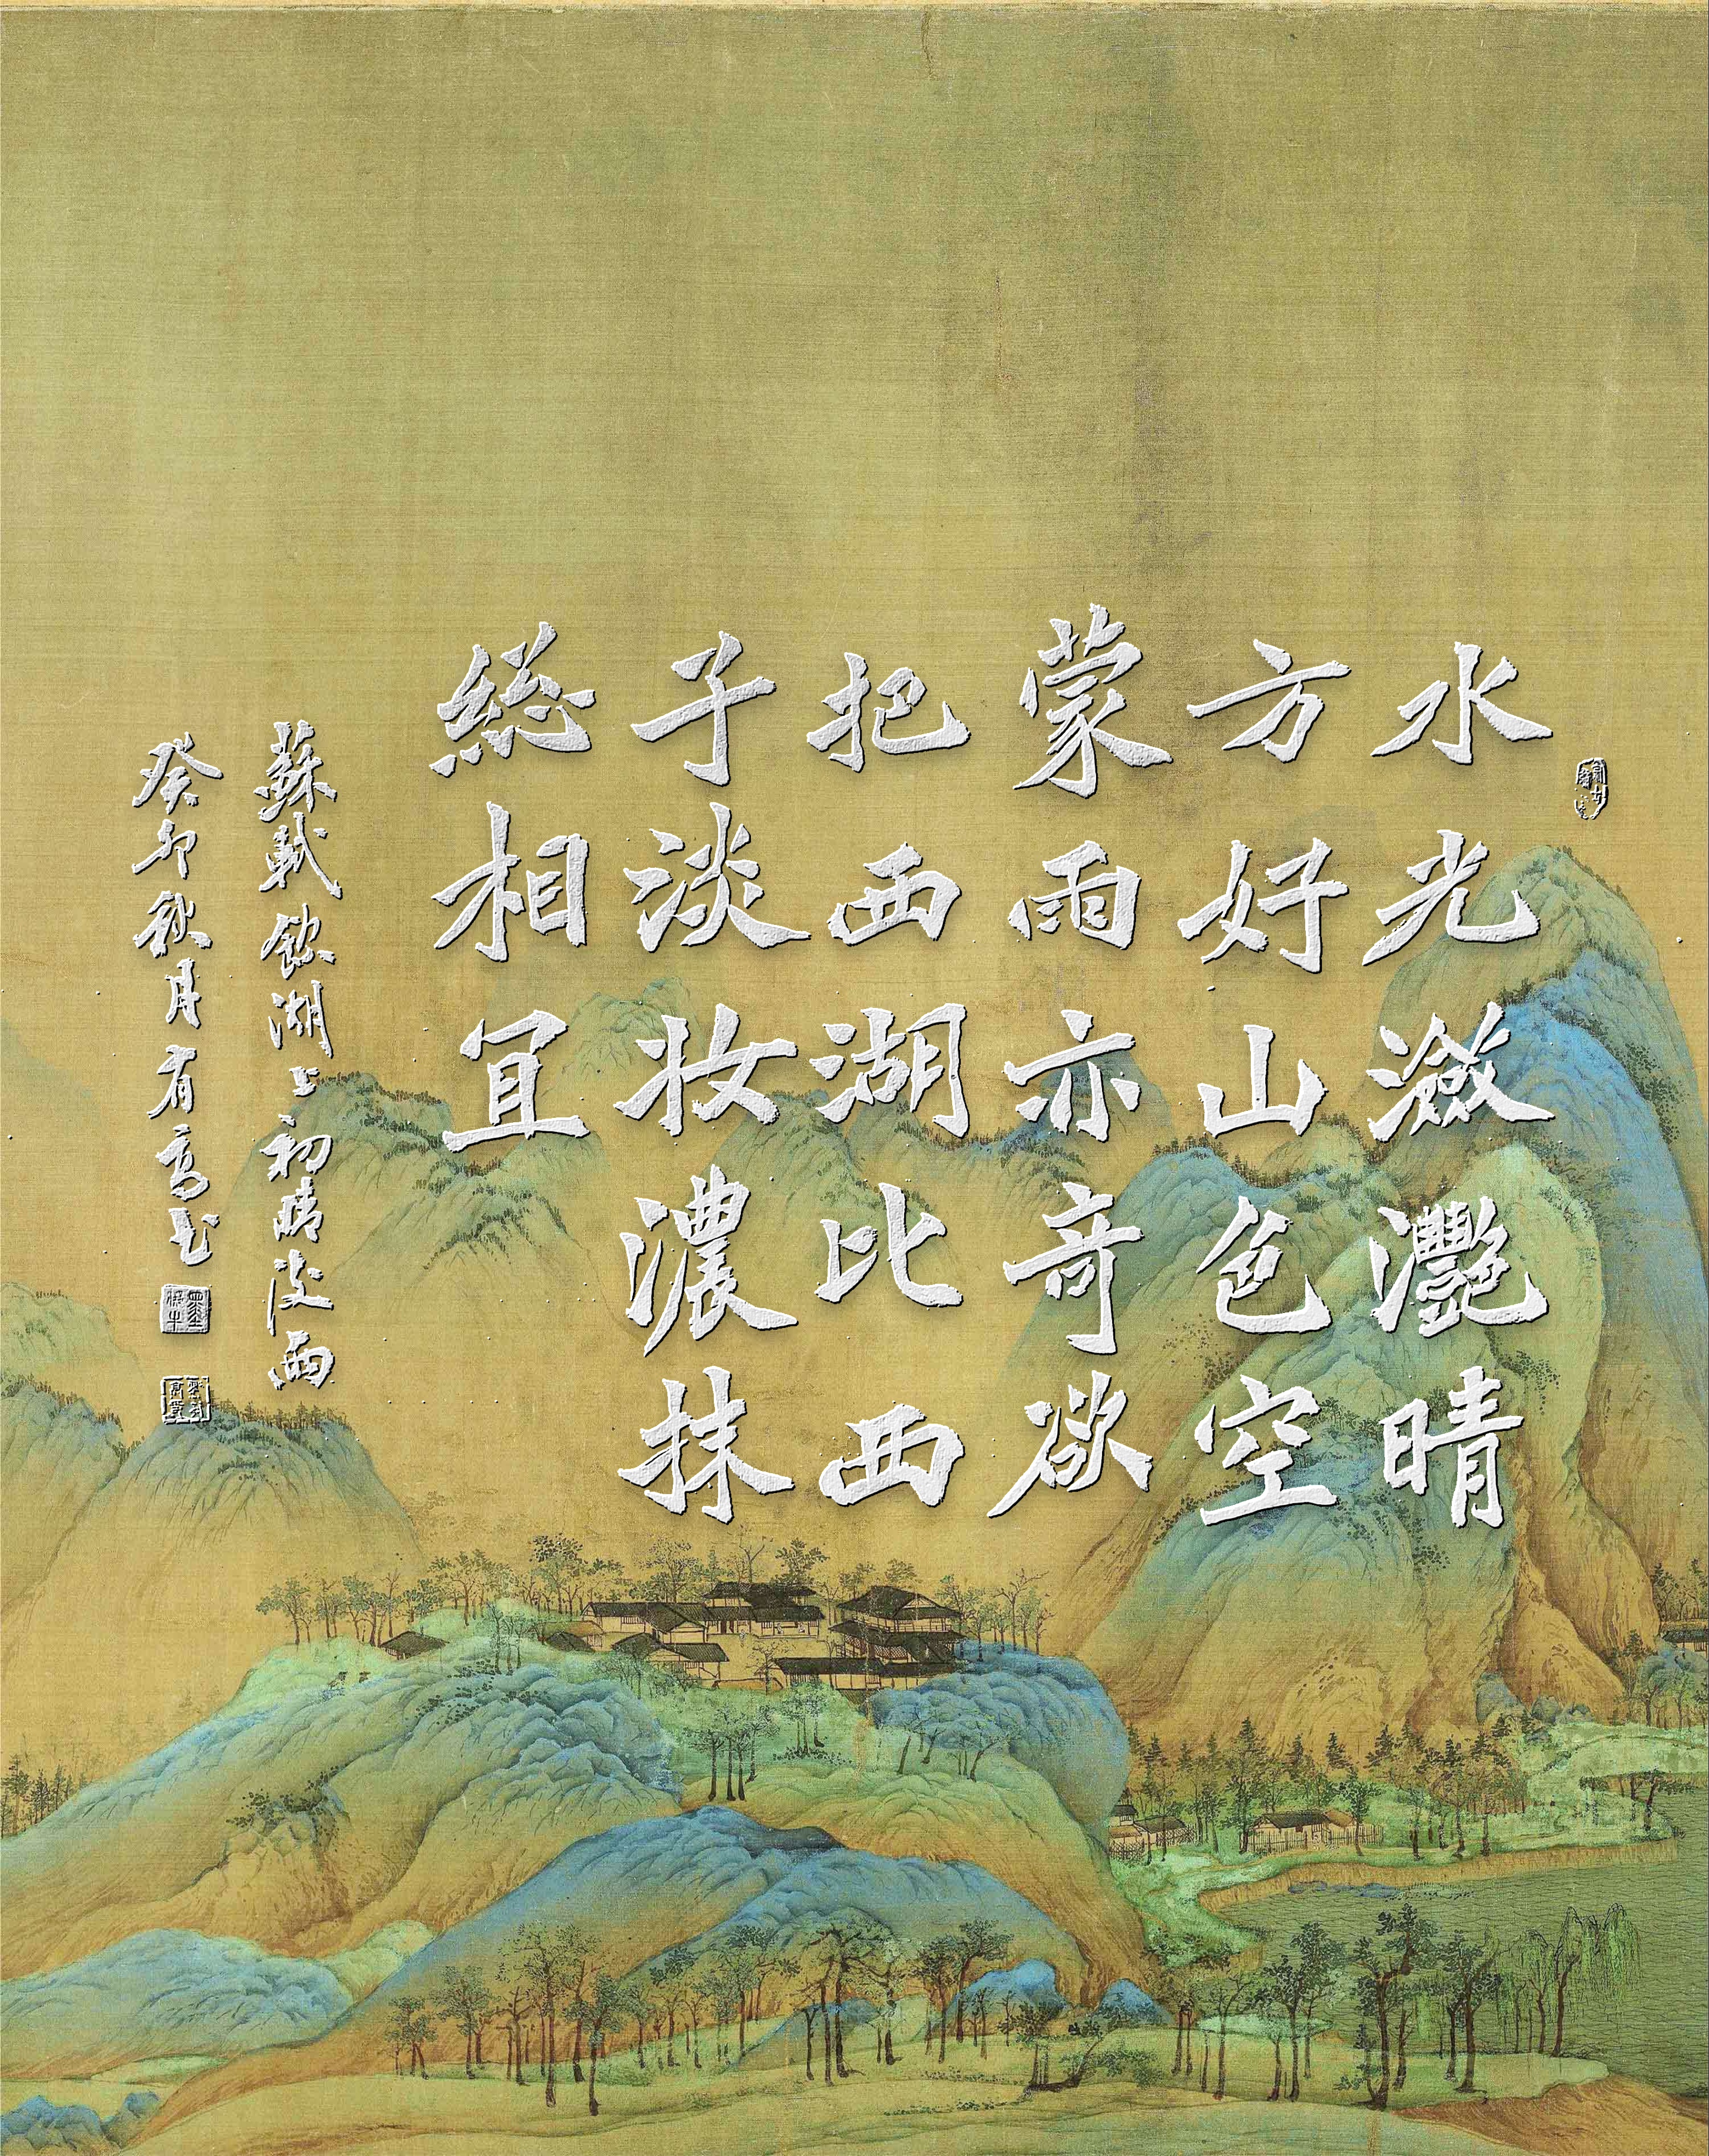 水光潋灔晴
方好山色空
蒙雨亦奇欲
把西湖比西
子淡妆濃抹
総相宜
蘇軾飲湖上初晴後雨
癸卯秋月有高书